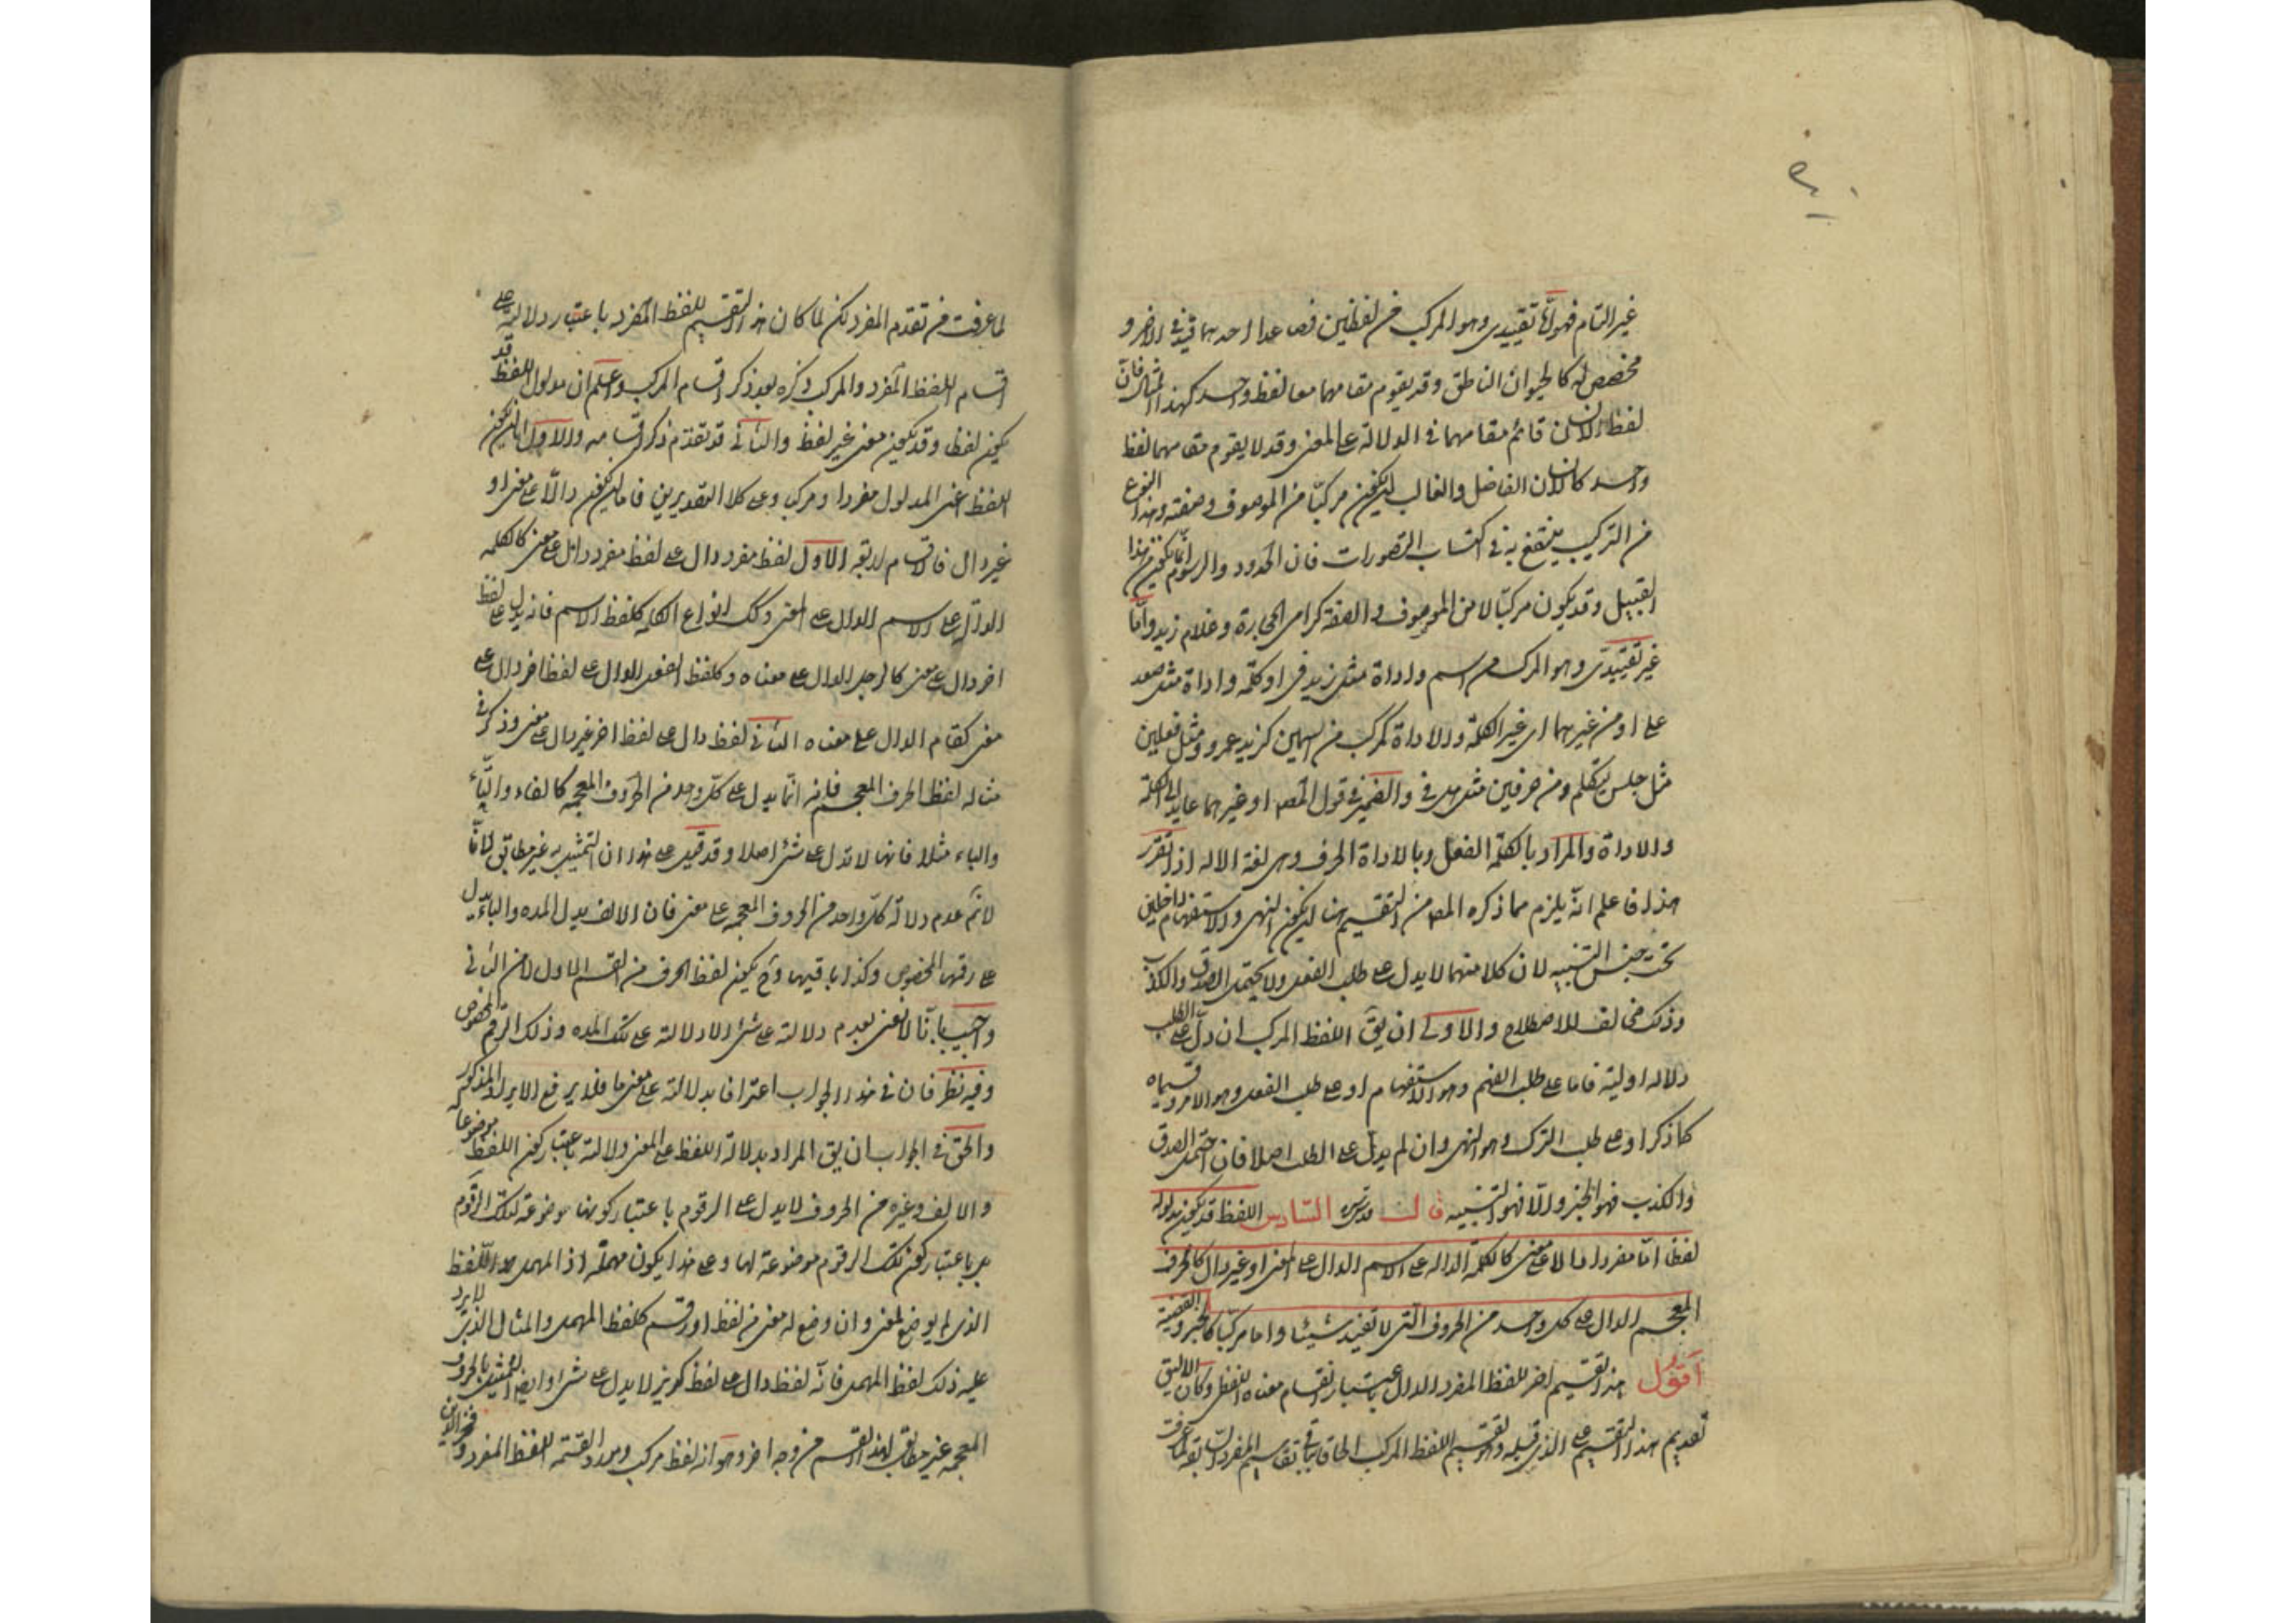 غير التام فهو اما تقييدى وهو المركب من لفظين فصاعدا احدهما قيد فى الاخر و
مخصص له كالحيوان الناطق وقد يقوم مقامهما معا لفظ واحد كهذا المثال فان
لفظ الانسان قائم مقامهما فى الدلالة على المعنى وقد لا يقوم مقامهما لفظ
واحد كالانسان الفاضل والغالب ان يكون مركبا من الموصوف وصفته وهذا النوع
من التركيب ينتفع به فى اكتساب التصورات فان الحدود والرسوم انما تكون من هذا
القبيل وقد يكون مركبا لا من الموصوف والصفة كرامى الحجارة وغلام زيد واما
غير تقييدى وهو المركب من اسم واداة مثل زيد فى او كلمة واداة مثل صعد
على او من غيرهما اى غير الكلمة والاداة كمركب من اسمين كزيد عمرو ومثل فعلين
مثل جلس يتكلم ومن حرفين مثل هل فى والضمير فى قول المص او غيرهما عايد الى الكلمة
والاداة والمراد بالكلمة الفعل وبالاداة الحرف وهى لغة الالة اذا تقرر
هذا فاعلم انه يلزم مما ذكره المص من التقسيم هنا ان يكون النهى والاستفهام داخلين
تحت جنس التنبيه لان كلا منهما لا يدل على طلب الفعل ولا يحتمل الصدق والكذب
وذلك مخالف للاصطلاح والاولى ان يق اللفظ المركب ان دل على الطلب
دلالة اولية فاما على طلب الفهم وهو الاستفهام او على طلب الفعل وهو الامر وقسيماه
كما ذكر او على طلب الترك وهو النهى وان لم يدل على الطلب اصلا فان احتمل الصدق
والكذب فهو الخبر والا فهو التنبيه قال قدس سره السادس اللفظ قد يكون مدلوله
لفظا اما مفردا دالا على معنى كالكلمة الدالة على الاسم الدال على المعنى او غير دال كالحرف
المعجم الدال على كل واحد من الحروف التى لا تفيد شيئا واما مركبا كالخبر والقضية
اقول هذا تقسيم اخر للفظ المفرد الدال باعتبار انقسام معناه اللفظ وكان الاليق
تقديم هذا التقسيم على الذى قبله وهو تقسيم اللفظ المركب الحاقا بباقى تقاسيم المفرد السابقة لما عرفت
لما عرفت من تقدم المفرد لكن لما كان هذا التقسيم للفظ المفرد باعتبار دلالته على
اقسام اللفظ المفرد والمركب ذكره بعد ذكر اقسام المركب واعلم ان مدلول اللفظ قد
يكون لفظا وقد يكون معنى غير لفظ والثانى قد تقدم ذكر اقسامه والاول اما ان يكون
اللفظ اعنى المدلول مفردا او مركبا وعلى كلا التقديرين فاما ان يكون دالا على معنى او
غير دال فالاقسام اربعة الاول لفظ مفرد دال على لفظ مفرد دال على معنى كالكلمة
الدالة على الاسم الدال على المعنى وكك انواع الكلمة كلفظ الاسم فانه يدل على لفظ
اخر دال على معنى كالرجل الدال على معناه وكلفظ الفعل الدال على لفظ اخر دال على
معنى كقام الدال على معناه الثانى لفظ دال على لفظ اخر غير دال على معنى وذكر فى
مثاله لفظ الحرف المعجم فانه انما يدل على كل واحد من الحروف المعجمة كالفاء والتاء
والباء مثلا فانها لا تدل على شئ اصلا وقد قيل على هذا ان التمثيل به غير مطابق لانا
لانم عدم دلالة كل واحد من الحروف المعجمة على معنى فان الالف يدل المدة والباء يدل
على رقمها المخصوص وكذا باقيها وح يكون لفظ الحرف من القسم الاول لا من الثانى
واجيب بانا لا نعنى بعدم دلالته على شئ الا دلالته على تلك المدة وذلك الرقم المخصوص
وفيه نظر فان فى هذا الجواب اعترافا بدلالته على معنى ما فلا يرفع الايراد المذكور
والحق فى الجواب ان يق المراد بدلالة اللفظ على المعنى دلالته باعتبار كون اللفظ موضوعا
والالف وغيره من الحروف لا يدل على الرقوم باعتبار كونها موضوعة لتلك الرقوم
بل باعتبار كون تلك الرقوم موضوعة لها وعلى هذا يكون مهملة اذ المهمل هو اللفظ
الذى لم يوضع لمعنى وان وضع له معنى من لفظ او رقم كلفظ المهمل والمثال الذى لا يرد
عليه ذلك لفظ المهمل فانه لفظ دال على لفظ كديز لا يدل على شئ وايضا التمثيل بالحروف
المعجمة غير مطابق لهذا القسم من وجه اخر وهو انه لفظ مركب ومورد القسمة اللفظ المفرد و